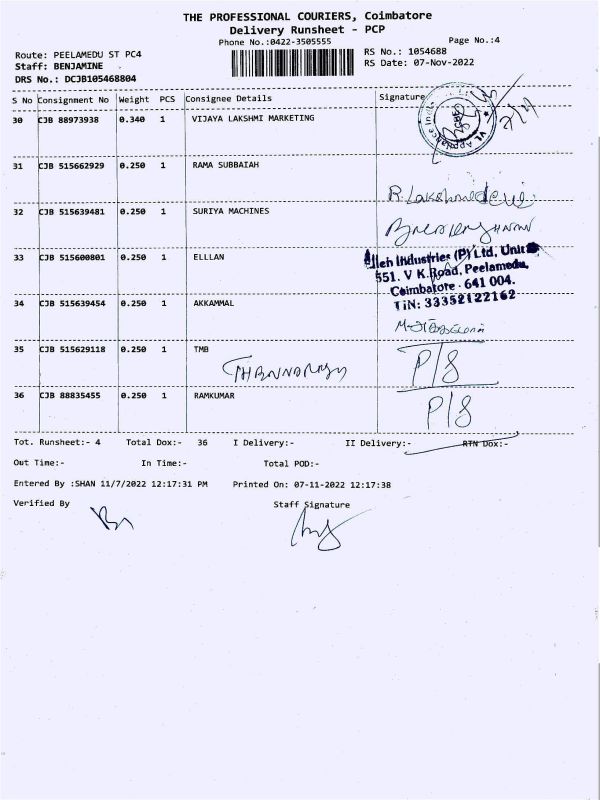 THE PROFESSIONAL COURIERS, Coimbatore
Delivery Runsheet - PCP
Phone No.:0422-3505555
Page No.:4
Route: PEELAMEDU ST PC4
RS No.: 1054688
Staff: BENJAMINE
RS Date: 07-Nov-2022
DRS No.: DCJB105468804
S No Consignment No Weight PCS Consignee Details Signature
30 CJB 88973938 0.340 1 VIJAYA LAKSHMI MARKETING
31 CJB 515662929 0.250 1 RAMA SUBBAIAH
R. Lakshmidevi
32 CJB 515639481 0.250 1 SURIYA MACHINES
33 CJB 515600801 0.250 1 ELLLAN
Industries (P) Ltd, Unit
551. V K.Road, Peelamedu,
Coimbatore - 641 004.
TiN: 33352122162
34 CJB 515639454 0.250 1 AKKAMMAL
35 CJB 515629118 0.250 1 TMB
P/S
36 CJB 88835455 0.250 1 RAMKUMAR
P/S
Tot. Runsheet:- 4 Total Dox:- 36 I Delivery:- II Delivery:- RTN Dox:-
Out Time:- In Time:- Total POD:-
Entered By :SHAN 11/7/2022 12:17:31 PM Printed On: 07-11-2022 12:17:38
Verified By Staff Signature